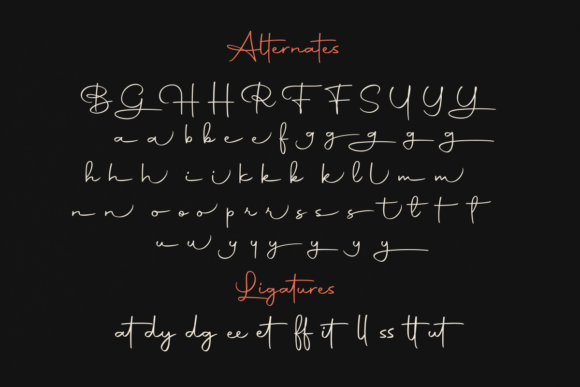 Alternates
B G H H R F F S Y Y Y
a a b b e e f g g g g g
h h h i i k k k k l l m m
n n o o o p r r s s s t t t t
u u y q y y y y
Ligatures
at dy dg ee et ff it ll ss tt ut